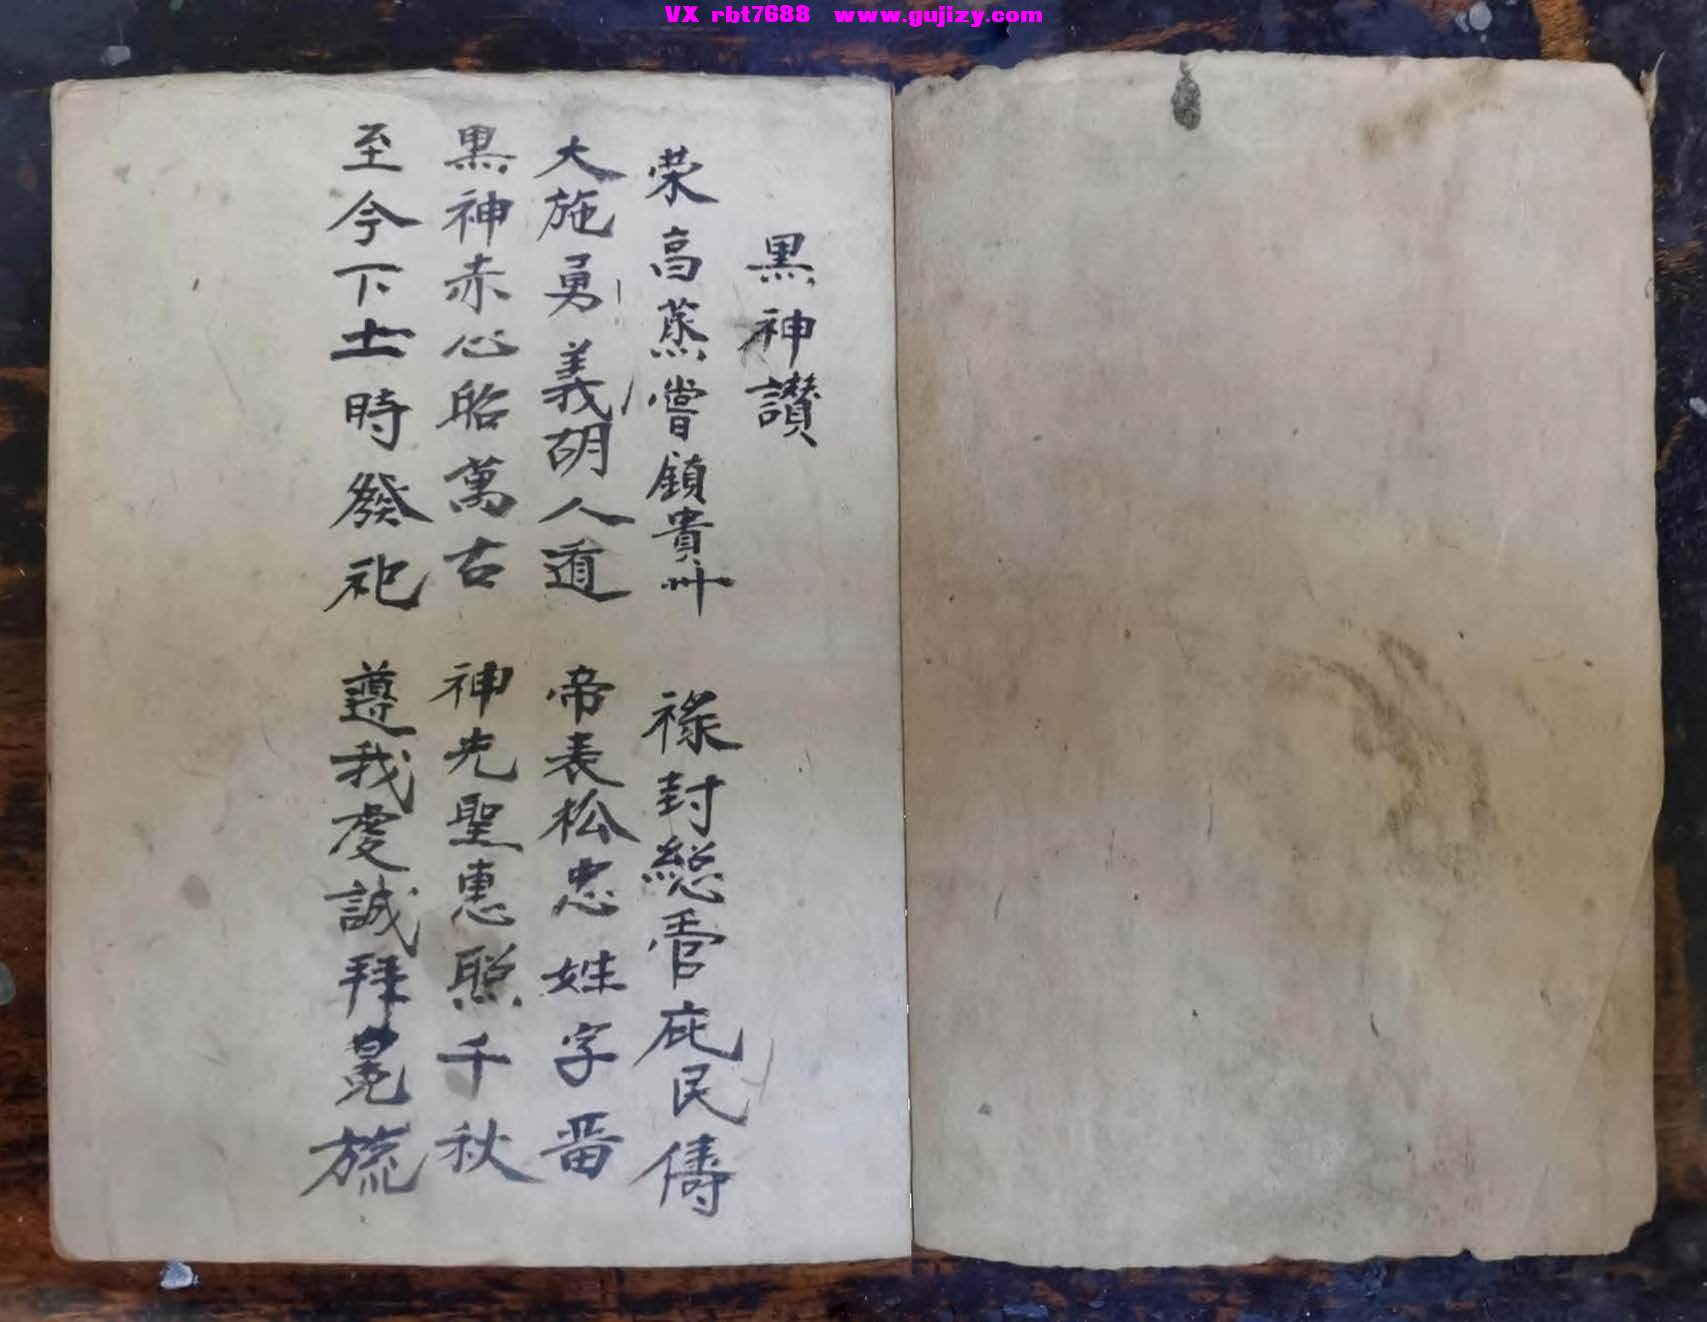 VX rbt7688 www.gujizy.com
黒神讃
荣高蒸嘗鎮貴卅 禄封総管庇民儔
大施勇義胡人道 帝表松忠姓字畨
黒神赤心昭萬古 神光聖惠照千秋
至今下士時發祀 遵我虔誠拜冕旒